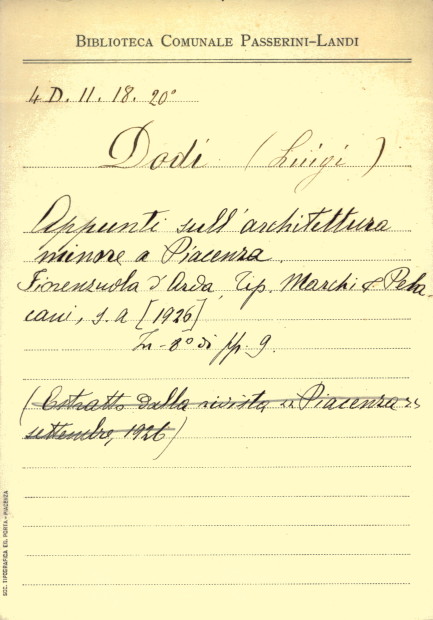 BIBLIOTECA COMUNALE PASSERINI-LANDI
4 D. 11. 18. 20°
Dodi (Luigi)
Appunti sull'architettura
minore a Piacenza.
Fiorenzuola d'Arda, Tip. Marchi & Pela-
cani, s. a [1926]
In-8° di pp. 9.
(Estratto dalla rivista "Piacenza"
settembre, 1926)
SOC. TIPOGRAFICA ED. PORTA - PIACENZA